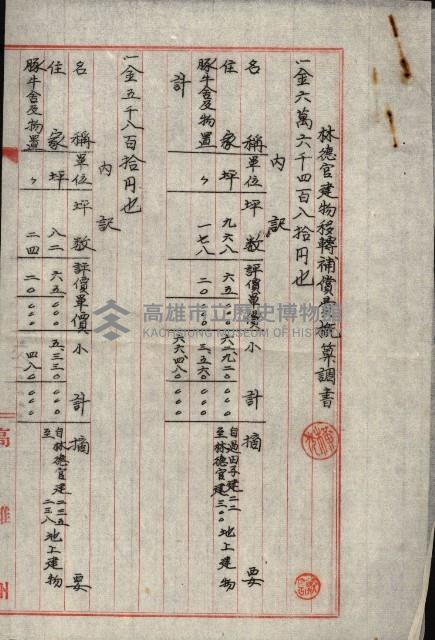 林德官建物移轉補償金概算調書
一金六萬六千四百八拾円也
內訳
名稱 單位 坪數 評價單價 小計 摘要
住家 坪 九六八 六五〇〇〇 六二九二〇〇〇〇 自過田子建二二 至林德官建三〇〇 地上建物
豚牛舍及物置 〃 一七八 二〇〇〇〇 三五六〇〇〇〇
計 六六四八〇〇〇〇
一金五千八百拾円也
內訳
名稱 單位 坪數 評價單價 小計 摘要
住家 坪 八二 六五〇〇〇 五三三〇〇〇〇 自林德官建二三五 至 二三八 地上建物
豚牛舍及物置 〃 二四 二〇〇〇〇 四八〇〇〇〇
高雄州
高雄市立歷史博物館
KAOHSIUNG MUSEUM OF HISTORY